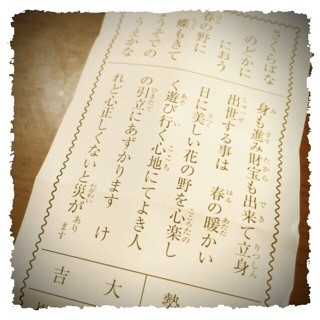 さくらばな
のどかに
におう
春の野に
蝶もきて
うそでの
うえかな
身も進み財宝も出来て立身
出世する事は　春の暖かい
日に美しい花の野を心楽し
く遊び行く心地にてよき人
の引立にあずかります　け
れど心正しくないと災があります
大
吉